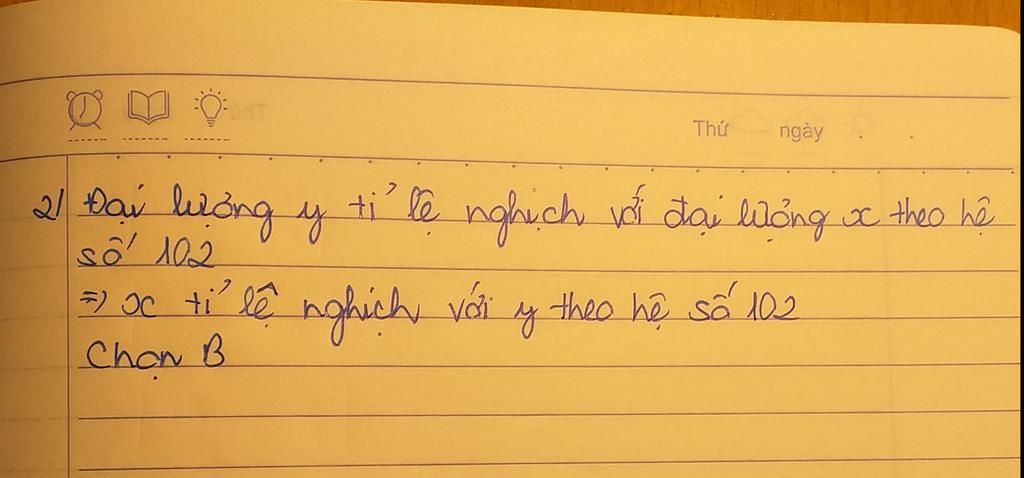 Thứ ngày
2) Đại lượng y tỉ lệ nghịch với đại lượng x theo hệ
số 102
=> x tỉ lệ nghịch với y theo hệ số 102
Chọn B